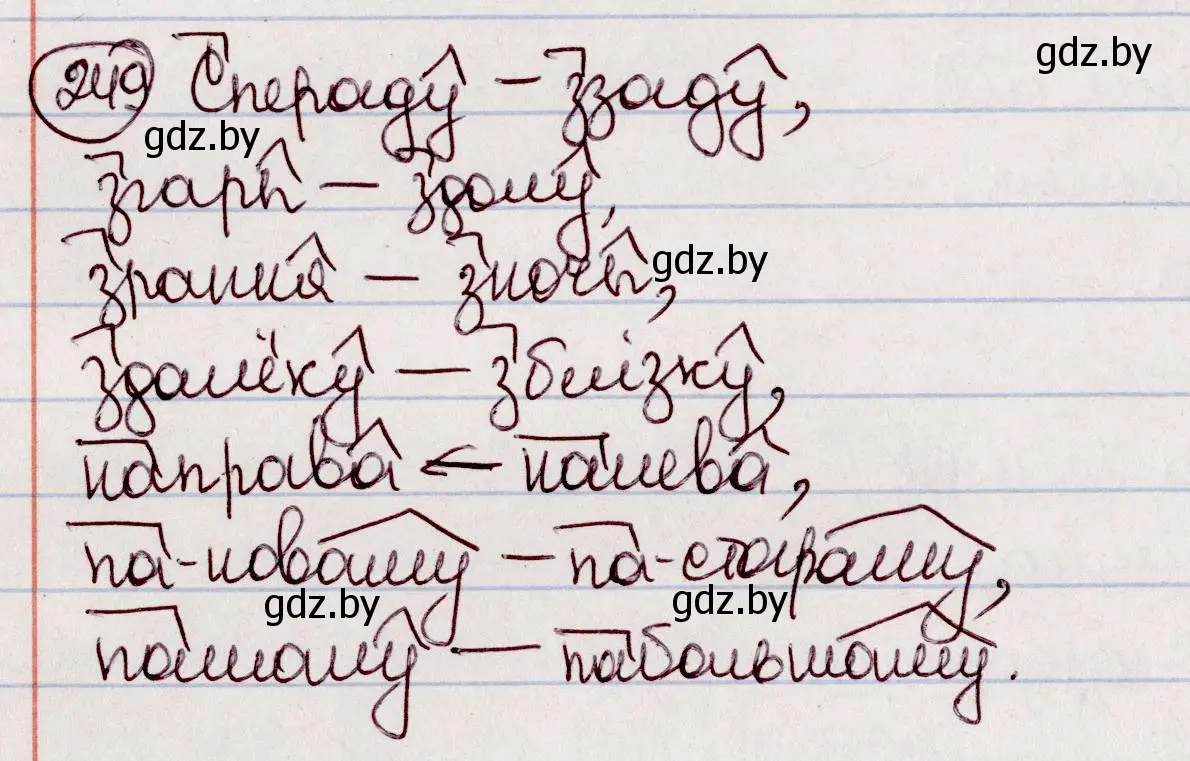 249 Спераду – ззаду, gdz.by
gdz.by
згары – здолу,
зрання – зночы, gdz.by
здалёку – зблізку,
направа – налева,
па-новаму – па-стараму,
gdz.by gdz.by
памалу – пабольшаму.